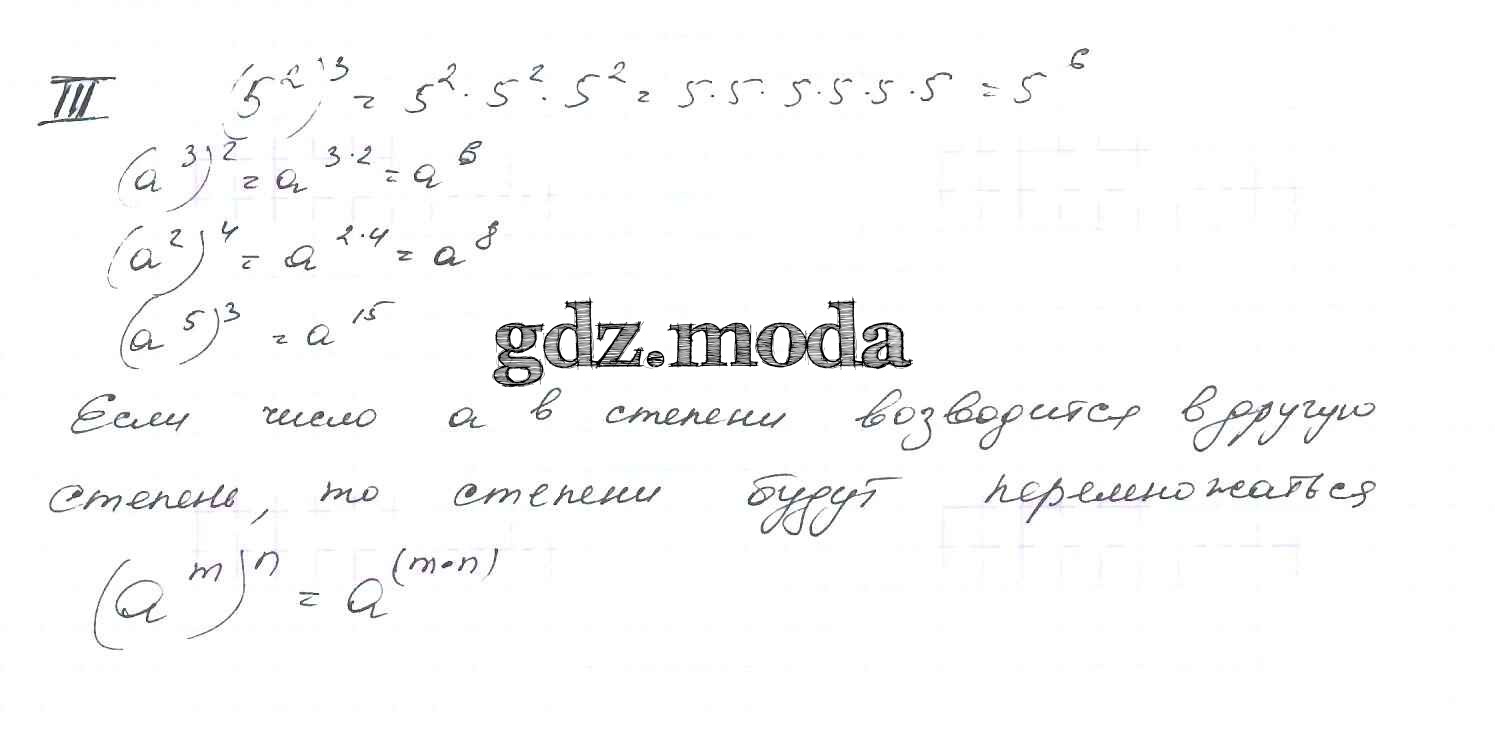 III (5²)³ = 5² · 5² · 5² = 5 · 5 · 5 · 5 · 5 · 5 = 5⁶
(a³)² = a³·² = a⁶
(a²)⁴ = a²·⁴ = a⁸
(a⁵)³ = a¹⁵
gdz.moda
Если число a в степени возводится в другую
степень, то степени будут перемножаться
(aᵐ)ⁿ = a⁽ᵐ·ⁿ⁾